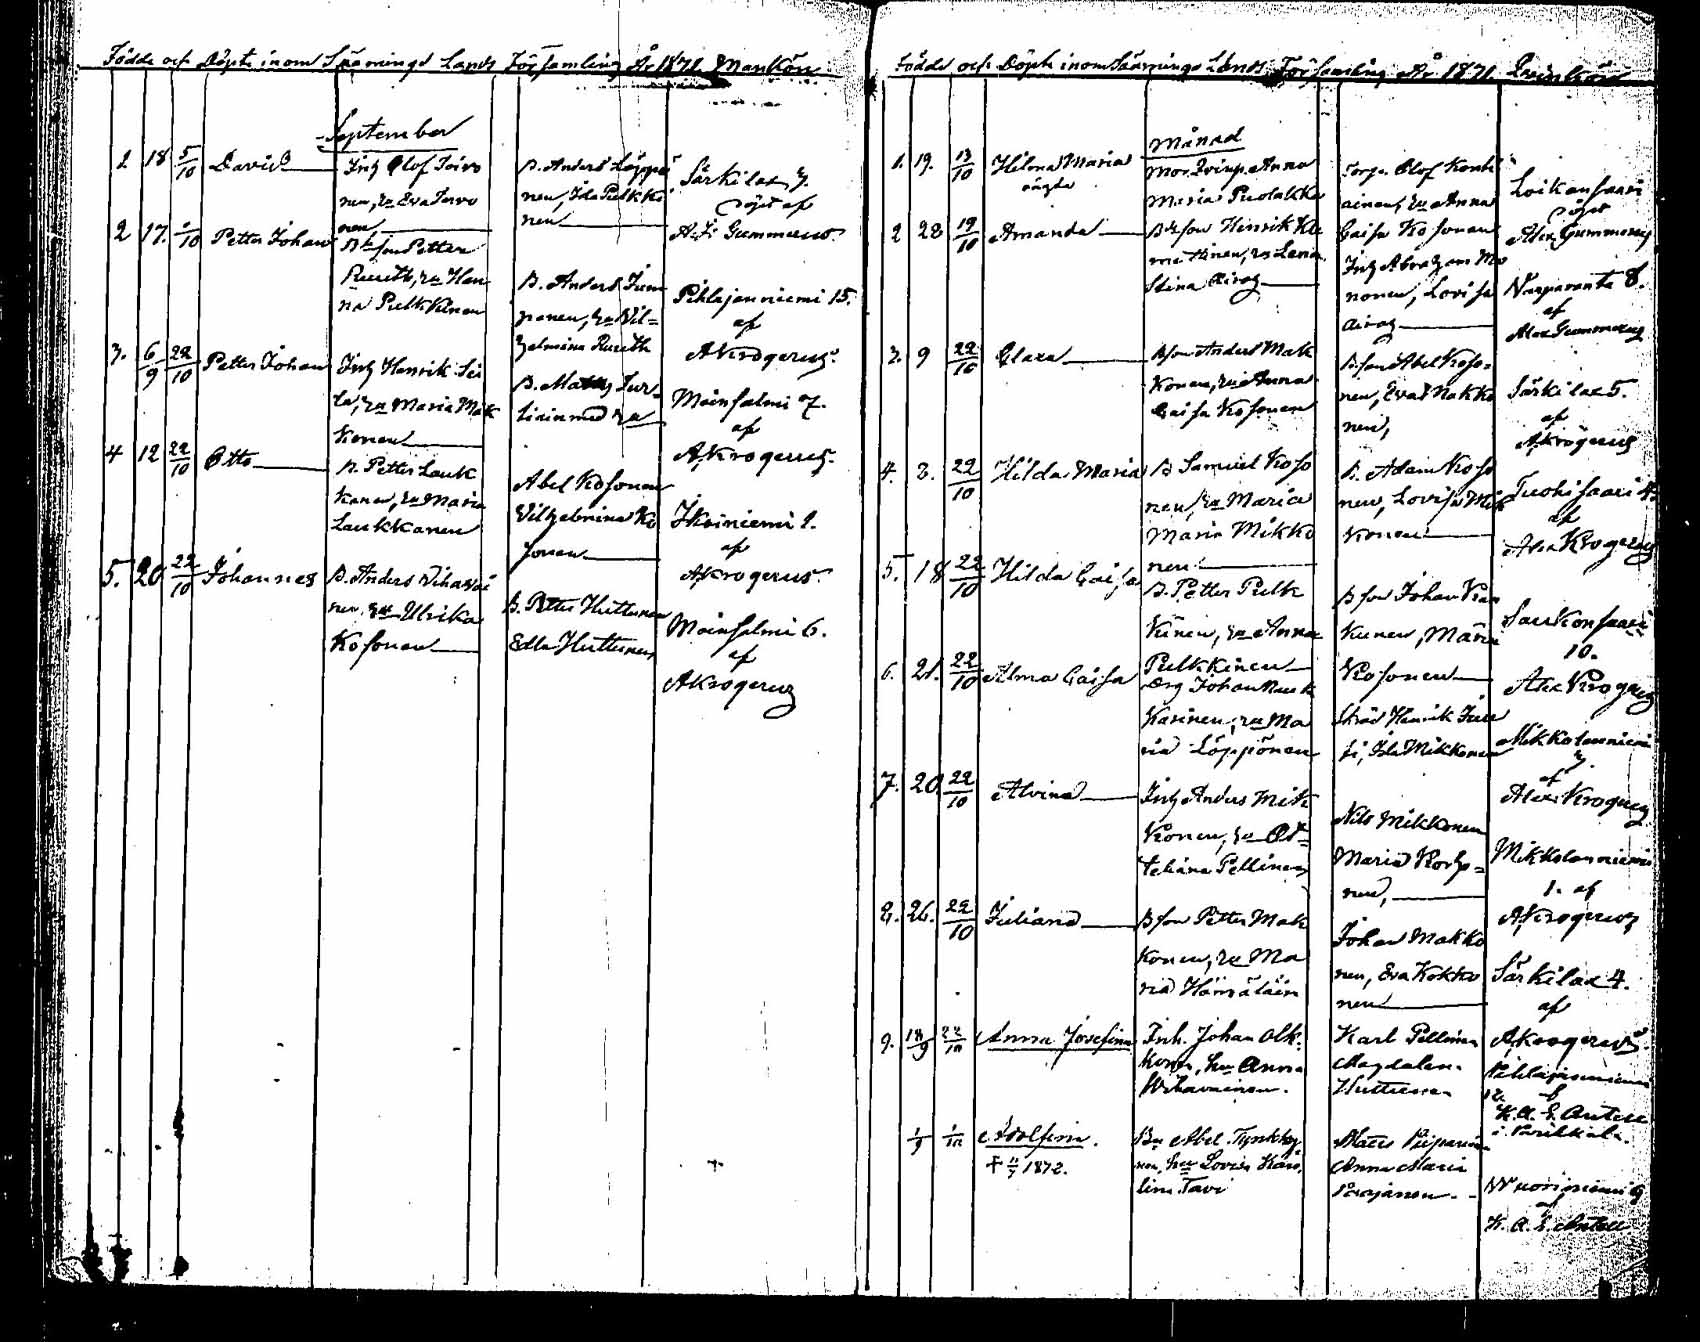 Födde och Döpte inom Säämings Lands Församling År 1871 Mankön
September
1 18 5/10 David Inh Olof Toivo
nen, hu Eva Toivo
nen
B. Anders Löppö
nen, Ida Pulkki
nen
Särkilax 7.
döpt af
A. F. Gummerus.
2 17. 1/10 Petter Johan Bdeson Petter
Rureth, hu Han
na Pulkkinen
B. Anders Jum
panen, hu Wil=
helmina Rureth
Pihlajaniemi 15.
af
AKrogerus.
3. 6/9 22/10 Petter Johan Inh Henrik Sei
la, hu Maria Mak
konen
B. Matts Tur
tiain med hu
Moinsalmi 7.
af
AKrogerus.
4 12 22/10 Otto B. Petter Lauk
kanen, hu Maria
Laukkanen
Abel Kosonen
Vilhelmina Ko
sonen
Ikoiniemi 1.
af
AKrogerus.
5. 20 22/10 Johannes B. Anders Wihavai
nen, hu Ulrika
Kosonen
B. Petter Huttunen
Edla Huttunen
Moinsalmi 6.
af
AKrogerus
Födde och Döpte inom Säämings Lands Församling År 1871. Qvinkön
Månad
1. 19. 13/10 Hilma Maria
oägta
Mor. Inhp Anna
Maria Puolakka
Torp. Olof Konti
ainen, hu Anna
Caisa Kosonen
Loikansaari
döpt
Alex Gummerus
2 28 19/10 Amanda Bdeson Hinrik Kle
mettinen, hu Lena
Stina Airas
Inh Abraham Mo
nonen, Lovisa
Airas
Warparanta 8.
af
Alex Gummerus
3. 9 22/10 Clara Bson Anders Mak
konen, hu Anna
Caisa Kosonen
Bson Abel Koso=
nen, Eva Makko
nen,
Särkilax 5.
af
AKrogerus
4. 3. 22/10 Hilda Maria B Samuel Koso
nen, hu Maria
Maria Mikko
nen
B. Adam Koso
nen, Lovisa Mik
konen
Tuohisaari 4.
af
Alex Krogerus
5. 18 22/10 Hilda Caisa B. Petter Pulk
kinen, hu Anna
Pulkkinen
B son Johan Kan
kunen, Maria
Kosonen
Saukonsaari
10.
Alex Krogerus
6. 21. 22/10 Alma Caisa Drg Johan Rauk
karinen, hu Ma
ria Löppönen
Skräd Henrik Juu
ti, Ida Mikkonen
Mikkolanniemi
af
Alex Krogerus
7. 20 22/10 Alvina Inh Anders Mik
konen, hu Ot=
teliana Pellinen
Nils Mikkonen
Maria Korho=
nen,
Mikkolanniemi
1. af
AKrogerus
8. 26. 22/10 Juliana Bson Petter Mak
konen, hu Ma
ria Hämäläin
Johan Makko
nen, Eva Kokko
nen
Särkilax 4.
af
AKrogerus.
9. 18/9 22/10 Anna Josefina Inh. Johan Olk-
konen, hu Anna
Wihavainen.
Karl Pellinen
Magdalen.
Huttunen
Pihlajaniemi
12.
K. A. E. Antell
i Parikkala.
1/9 1/10 Adolfina.
† 1872.
Bu Abel Tynkky
nen, hu Lovisa Karo
lina Tavi
Matts Piiparinen
Anna Maria
Parjanen
Wuoriniemi 9
af
K. A. E. Antell